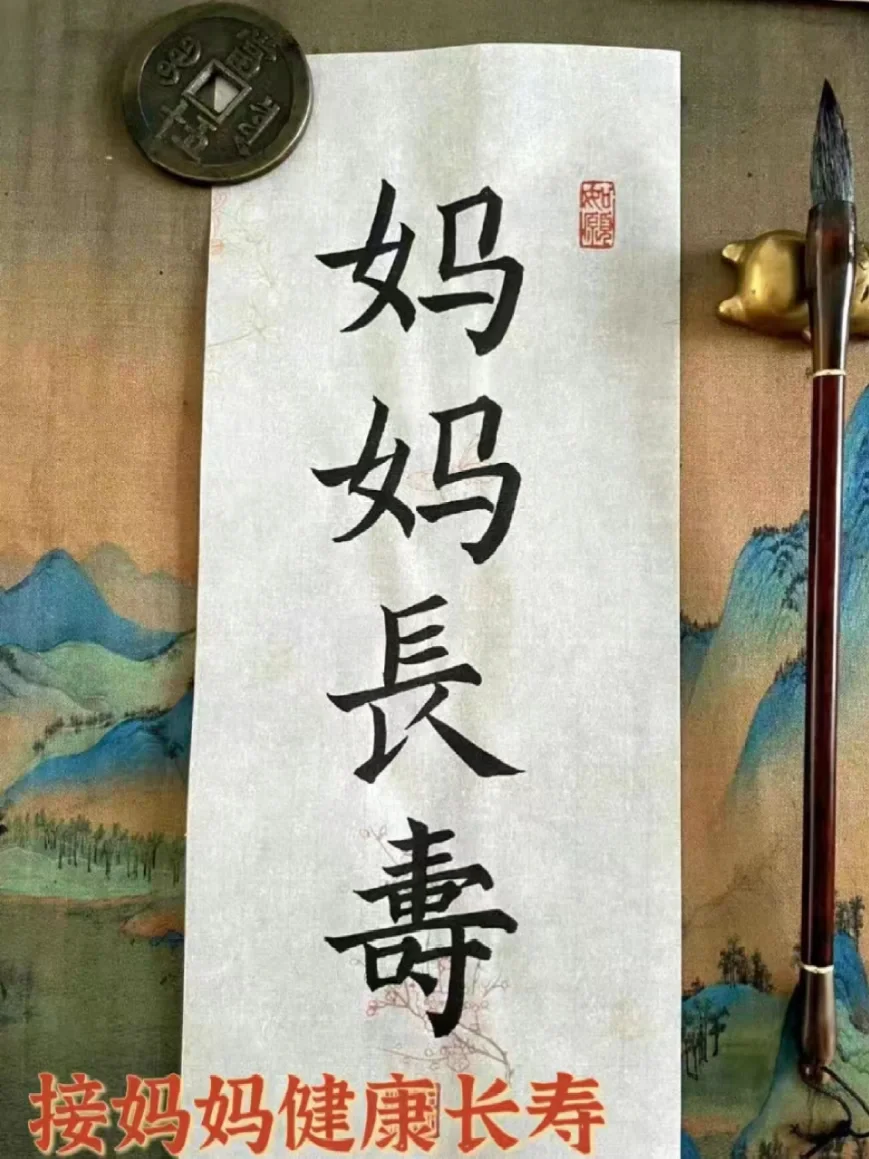 妈妈長壽
如願
接妈妈健康长寿